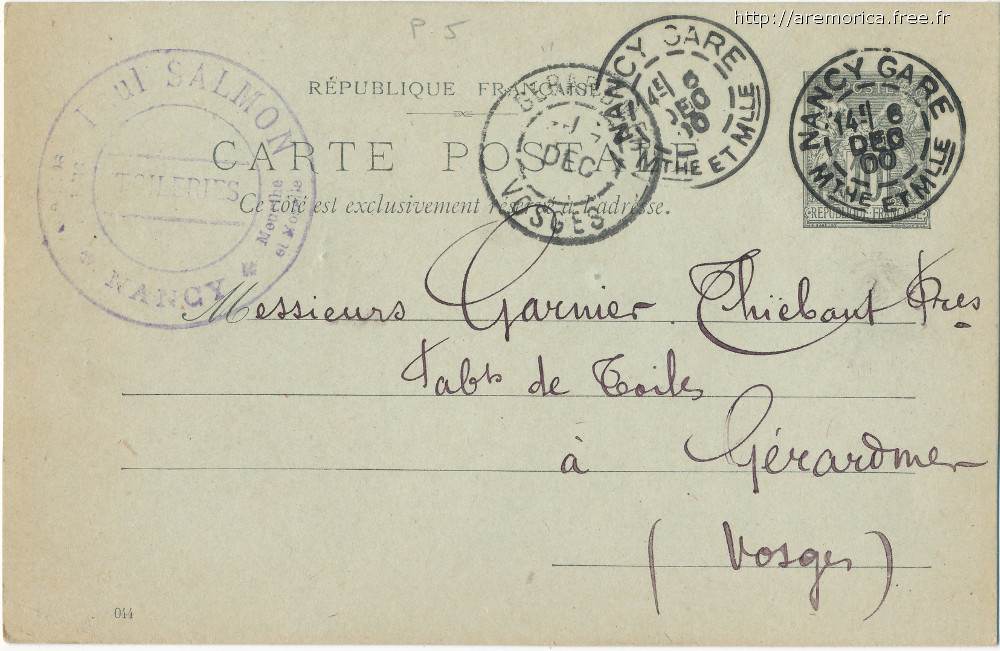 http://aremorica.free.fr
P. 5
RÉPUBLIQUE FRANÇAISE
CARTE POSTALE
Ce côté est exclusivement réservé à l'adresse.
Paul SALMON
TOILERIES
NANCY
Meurthe
et Moselle
VOSGES
DEC
NANCY GARE
14H 6
DEC
00
MTHE ET MLLE
NANCY GARE
14H 6
DEC
00
MTHE ET MLLE
RÉPUBLIQUE FRANÇAISE
Messieurs Garnier. Thiébaut Fres
Fabts de Toiles
à Gérardmer
(Vosges)
044